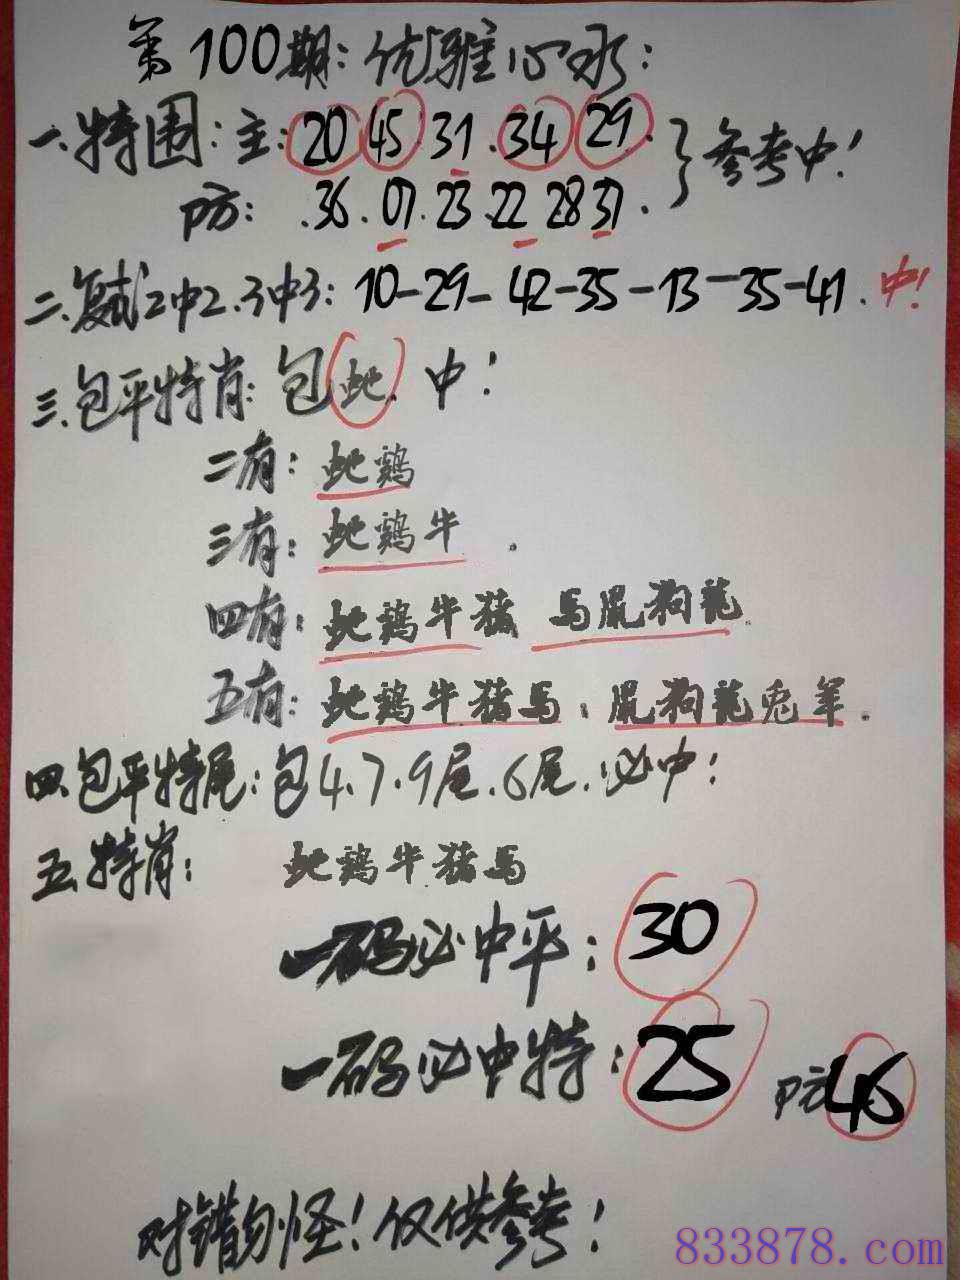 第100期:优雅心水:
一.特围:主:20 45 31.34 29.}参考中!
防:.36.07.23.22 28 37.
二.复试2中2.3中3:10-29-42-35-13-35-41.中!
三.包平特肖:包蛇.中!
二有:蛇鷄
三有:蛇鷄牛.
四有:蛇鷄牛猪 馬鼠狗龍
五有:蛇鷄牛猪馬:鼠狗龍兎羊.
四.包平特尾:包4.7.9尾.6尾.必中!
五.特肖:蛇鷄牛猪馬
一码必中平:30
一码必中特:25 防46
对错勿怪!仅供参考!
833878.com